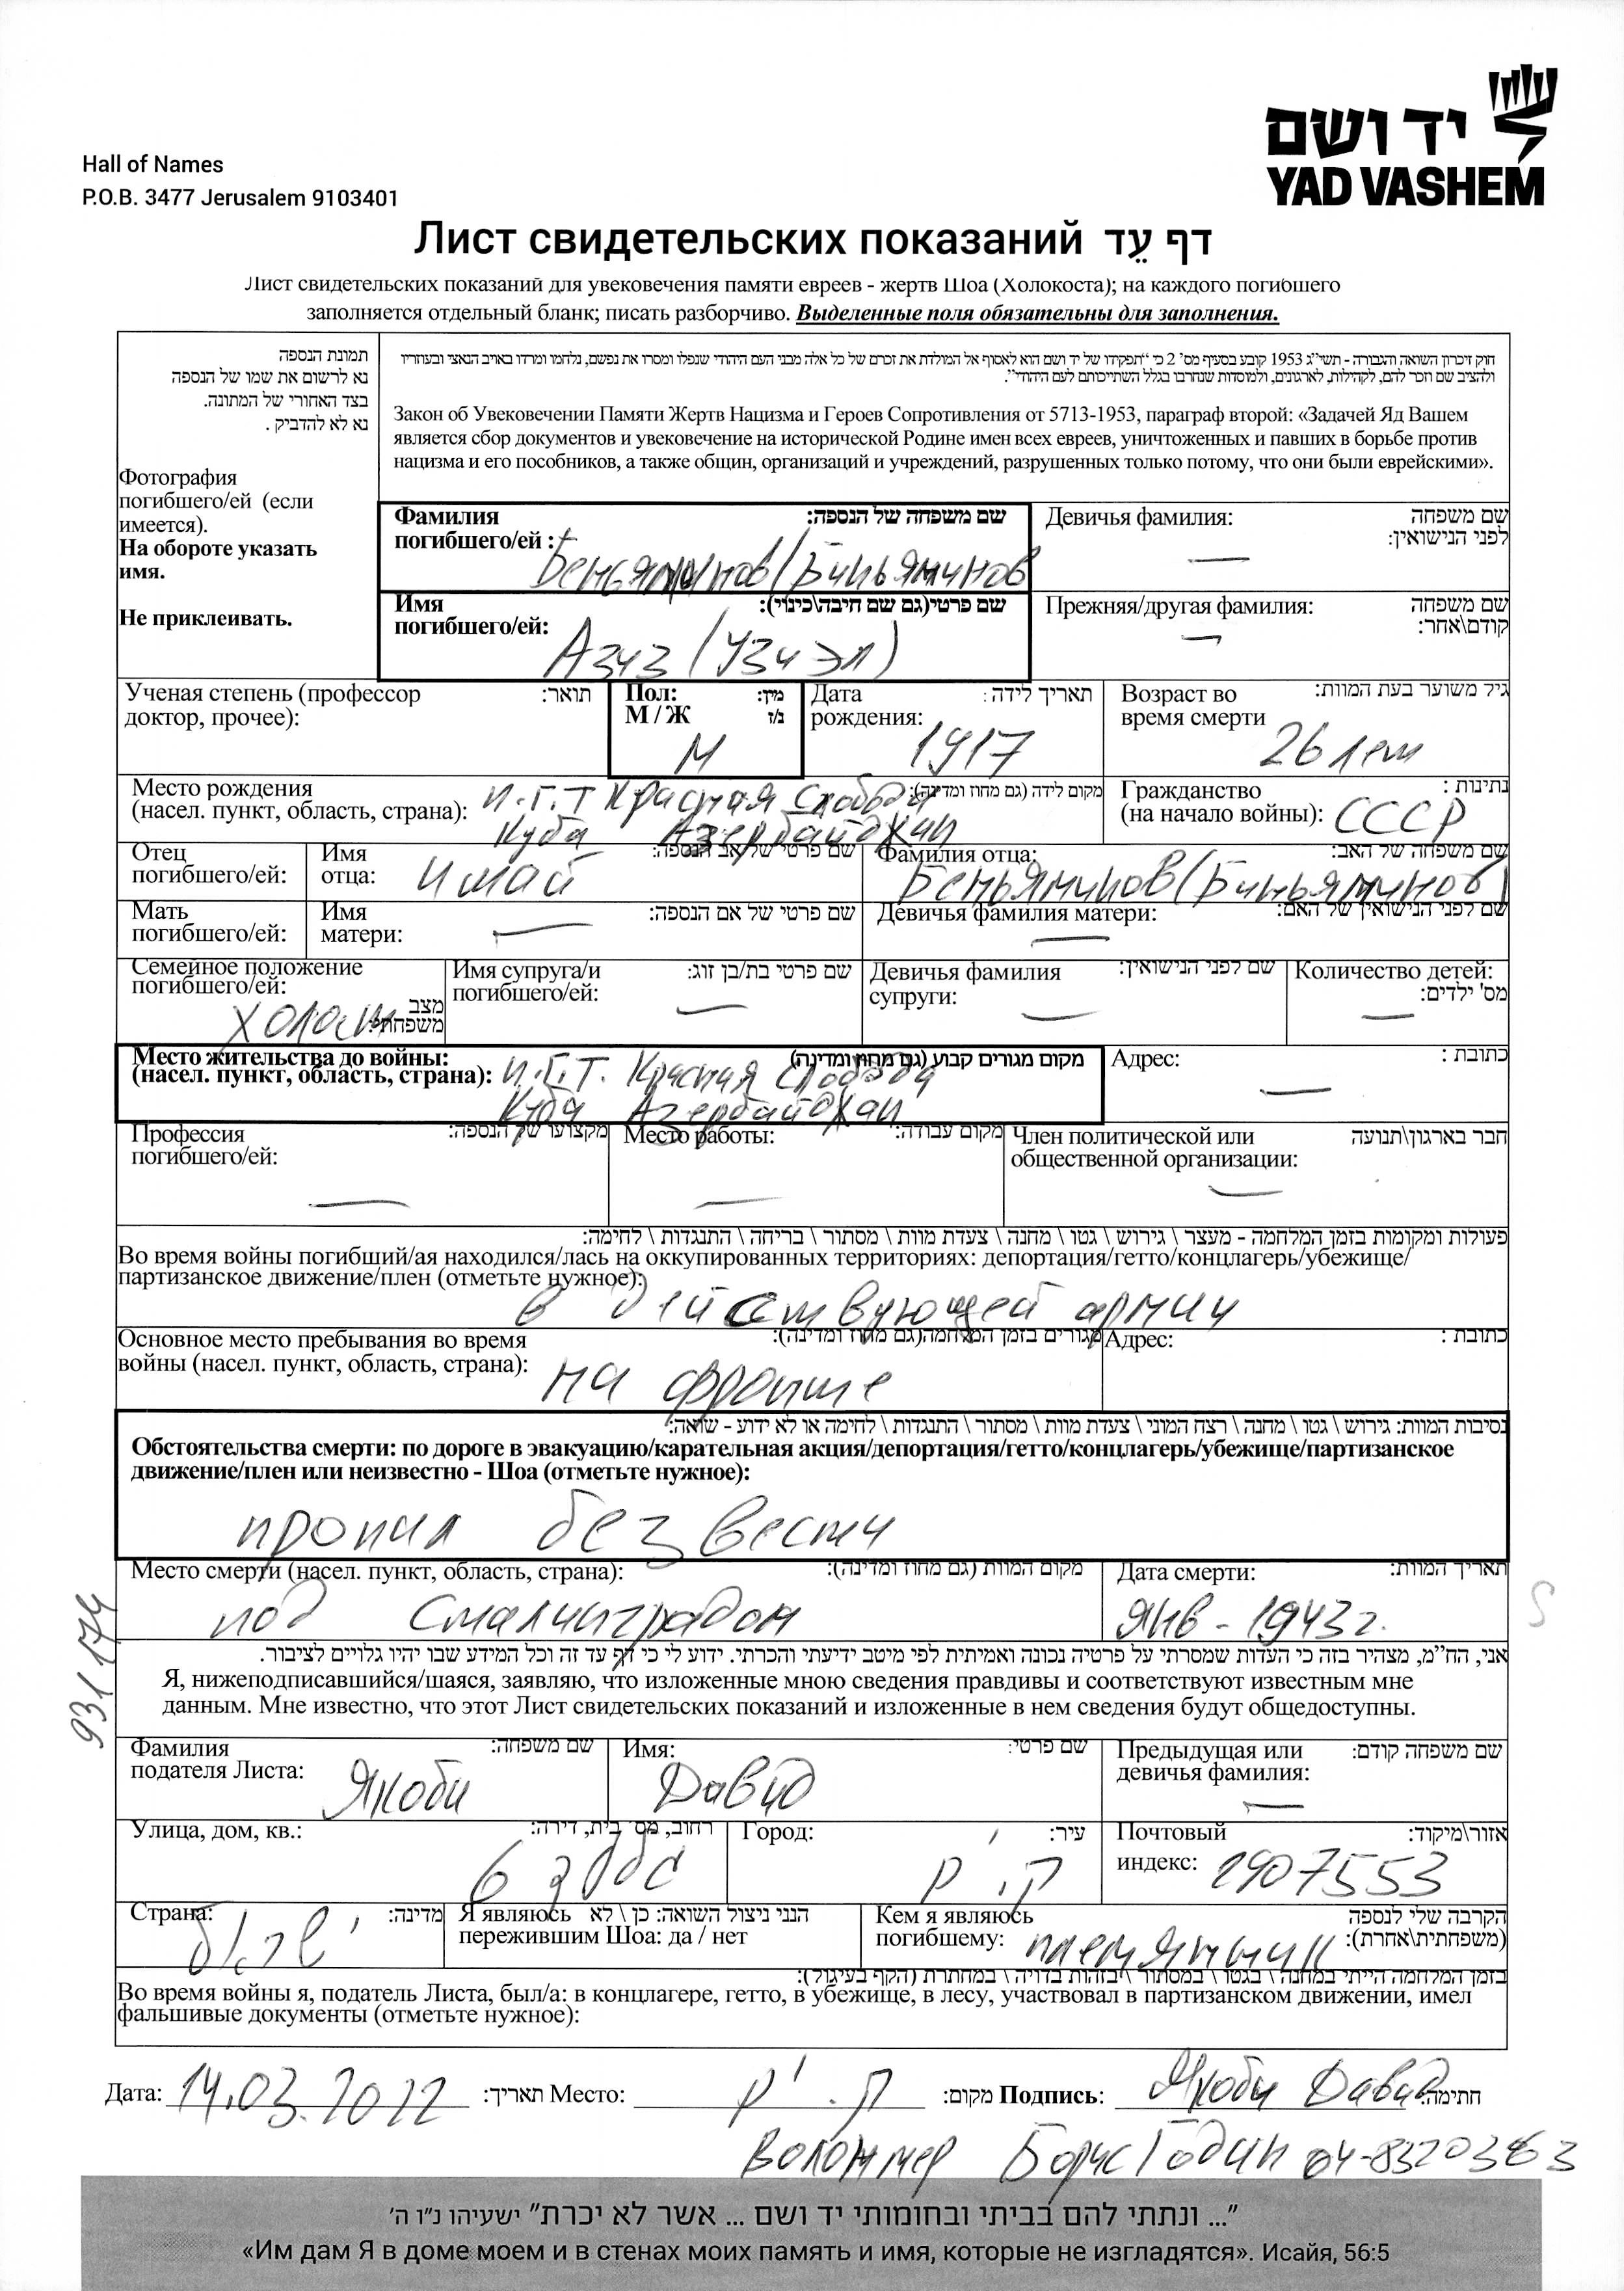 יד ושם
YAD VASHEM
Hall of Names
P.O.B. 3477 Jerusalem 9103401
Лист свидетельских показаний דף עֵד
Лист свидетельских показаний для увековечения памяти евреев - жертв Шоа (Холокоста); на каждого погибшего
заполняется отдельный бланк; писать разборчиво. Выделенные поля обязательны для заполнения.
תמונת הנספה
נא לרשום את שמו של הנספה
בצד האחורי של התמונה.
נא לא להדביק .
Фотография
погибшего/ей (если
имеется).
На обороте указать
имя.
Не приклеивать.
חוק זיכרון השואה והגבורה - תשי"ג 1953 קובע בסעיף מס' 2 כי "תפקידו של יד ושם הוא לאסוף אל המולדת את זכרם של כל אלה מבני העם היהודי שנפלו ומסרו את נפשם, נלחמו ומרדו באויב הנאצי ובעוזריו
ולהציב שם וזכר להם, לקהילות, לארגונים, ולמוסדות שנחרבו בגלל השתייכותם לעם היהודי".
Закон об Увековечении Памяти Жертв Нацизма и Героев Сопротивления от 5713-1953, параграф второй: «Задачей Яд Вашем
является сбор документов и увековечение на исторической Родине имен всех евреев, уничтоженных и павших в борьбе против
нацизма и его пособников, а также общин, организаций и учреждений, разрушенных только потому, что они были еврейскими».
Фамилия שם משפחה של הנספה:
погибшего/ей : Беньяминов (Биньяминов
Девичья фамилия: שם משפחה
לפני הנישואין:
Имя שם פרטי(גם שם חיבה\כינוי):
погибшего/ей: Азиз (Узиэл)
Прежняя/другая фамилия: שם משפחה
קודם\אחר:
Ученая степень (профессор תואר:
доктор, прочее):
Пол: מין:
М / Ж ז/נ
М
Дата תאריך לידה :
рождения:
1917
Возраст во גיל משוער בעת המוות:
время смерти
26 лет
Место рождения מקום לידה (גם מחוז ומדינה):
(насел. пункт, область, страна): п.г.т Красная Слобода
Куба Азербайджан
Гражданство נתינות :
(на начало войны): СССР
Отец
погибшего/ей:
Имя שם פרטי של אב הנספה:
отца: Имай
Фамилия отца: שם משפחה של האב:
Беньяминов (Биньяминов)
Мать
погибшего/ей:
Имя שם פרטי של אם הנספה:
матери:
Девичья фамилия матери: שם לפני הנישואין של האם:
Семейное положение
погибшего/ей:
מצב
משפחתי:
холост
Имя супруга/и שם פרטי בת/בן זוג:
погибшего/ей:
Девичья фамилия שם לפני הנישואין:
супруги:
Количество детей:
מס' ילדים:
Место жительства до войны: מקום מגורים קבוע (גם מחוז ומדינה)
(насел. пункт, область, страна): п.г.т. Красная Слобода
Куба Азербайджан
Адрес: כתובת :
Профессия מקצועו של הנספה:
погибшего/ей:
Место работы: מקום עבודה:
Член политической или חבר בארגון\תנועה
общественной организации:
פעולות ומקומות בזמן המלחמה - מעצר \ גירוש \ גטו \ מחנה \ צעדת מוות \ מסתור \ בריחה \ התנגדות \ לחימה:
Во время войны погибший/ая находился/лась на оккупированных территориях: депортация/гетто/концлагерь/убежище/
партизанское движение/плен (отметьте нужное):
в действующей армии
Основное место пребывания во время מגורים בזמן המלחמה(גם מחוז ומדינה):
войны (насел. пункт, область, страна): на фронте
Адрес: כתובת :
נסיבות המוות: גירוש \ גטו \ מחנה \ רצח המוני \ צעדת מוות \ מסתור \ התנגדות \ לחימה או לא ידוע - שואה:
Обстоятельства смерти: по дороге в эвакуацию/карательная акция/депортация/гетто/концлагерь/убежище/партизанское
движение/плен или неизвестно - Шоа (отметьте нужное):
пропал без вести
Место смерти (насел. пункт, область, страна): מקום המוות (גם מחוז ומדינה):
под Сталинградом
Дата смерти: תאריך המוות:
Янв - 1943 г.
S
931174
אני, הח"מ, מצהיר בזה כי העדות שמסרתי על פרטיה נכונה ואמיתית לפי מיטב ידיעתי והכרתי. ידוע לי כי דף עד זה וכל המידע שבו יהיו גלויים לציבור.
Я, нижеподписавшийся/шаяся, заявляю, что изложенные мною сведения правдивы и соответствуют известным мне
данным. Мне известно, что этот Лист свидетельских показаний и изложенные в нем сведения будут общедоступны.
Фамилия שם משפחה:
подателя Листа: Якоби
Имя: שם פרטי:
Давид
Предыдущая или שם משפחה קודם:
девичья фамилия:
Улица, дом, кв.: רחוב, מס' בית, דירה:
Город: עיר:
ק. י
Почтовый אזור\מיקוד:
индекс: 2907553
Страна: מדינה:
ישראל
Я являюсь הנני ניצול השואה: כן \ לא
пережившим Шоа: да / нет
Кем я являюсь הקרבה שלי לנספה
погибшему: племянник (משפחתית\אחרת):
בזמן המלחמה הייתי במחנה \ בגטו \ במסתור \ בזהות בדויה \ במחתרת (הקף בעיגול):
Во время войны я, податель Листа, был/а: в концлагере, гетто, в убежище, в лесу, участвовал в партизанском движении, имел
фальшивые документы (отметьте нужное):
Дата: 14.03.2022 תאריך: Место: מקום: Подпись: Якоби Давид חתימה:
Волонтер Борис Годин 04-8320363
"... ונתתי להם בביתי ובחומותי יד ושם ... אשר לא יכרת" ישעיהו נ"ו ה'
«Им дам Я в доме моем и в стенах моих память и имя, которые не изгладятся». Исайя, 56:5